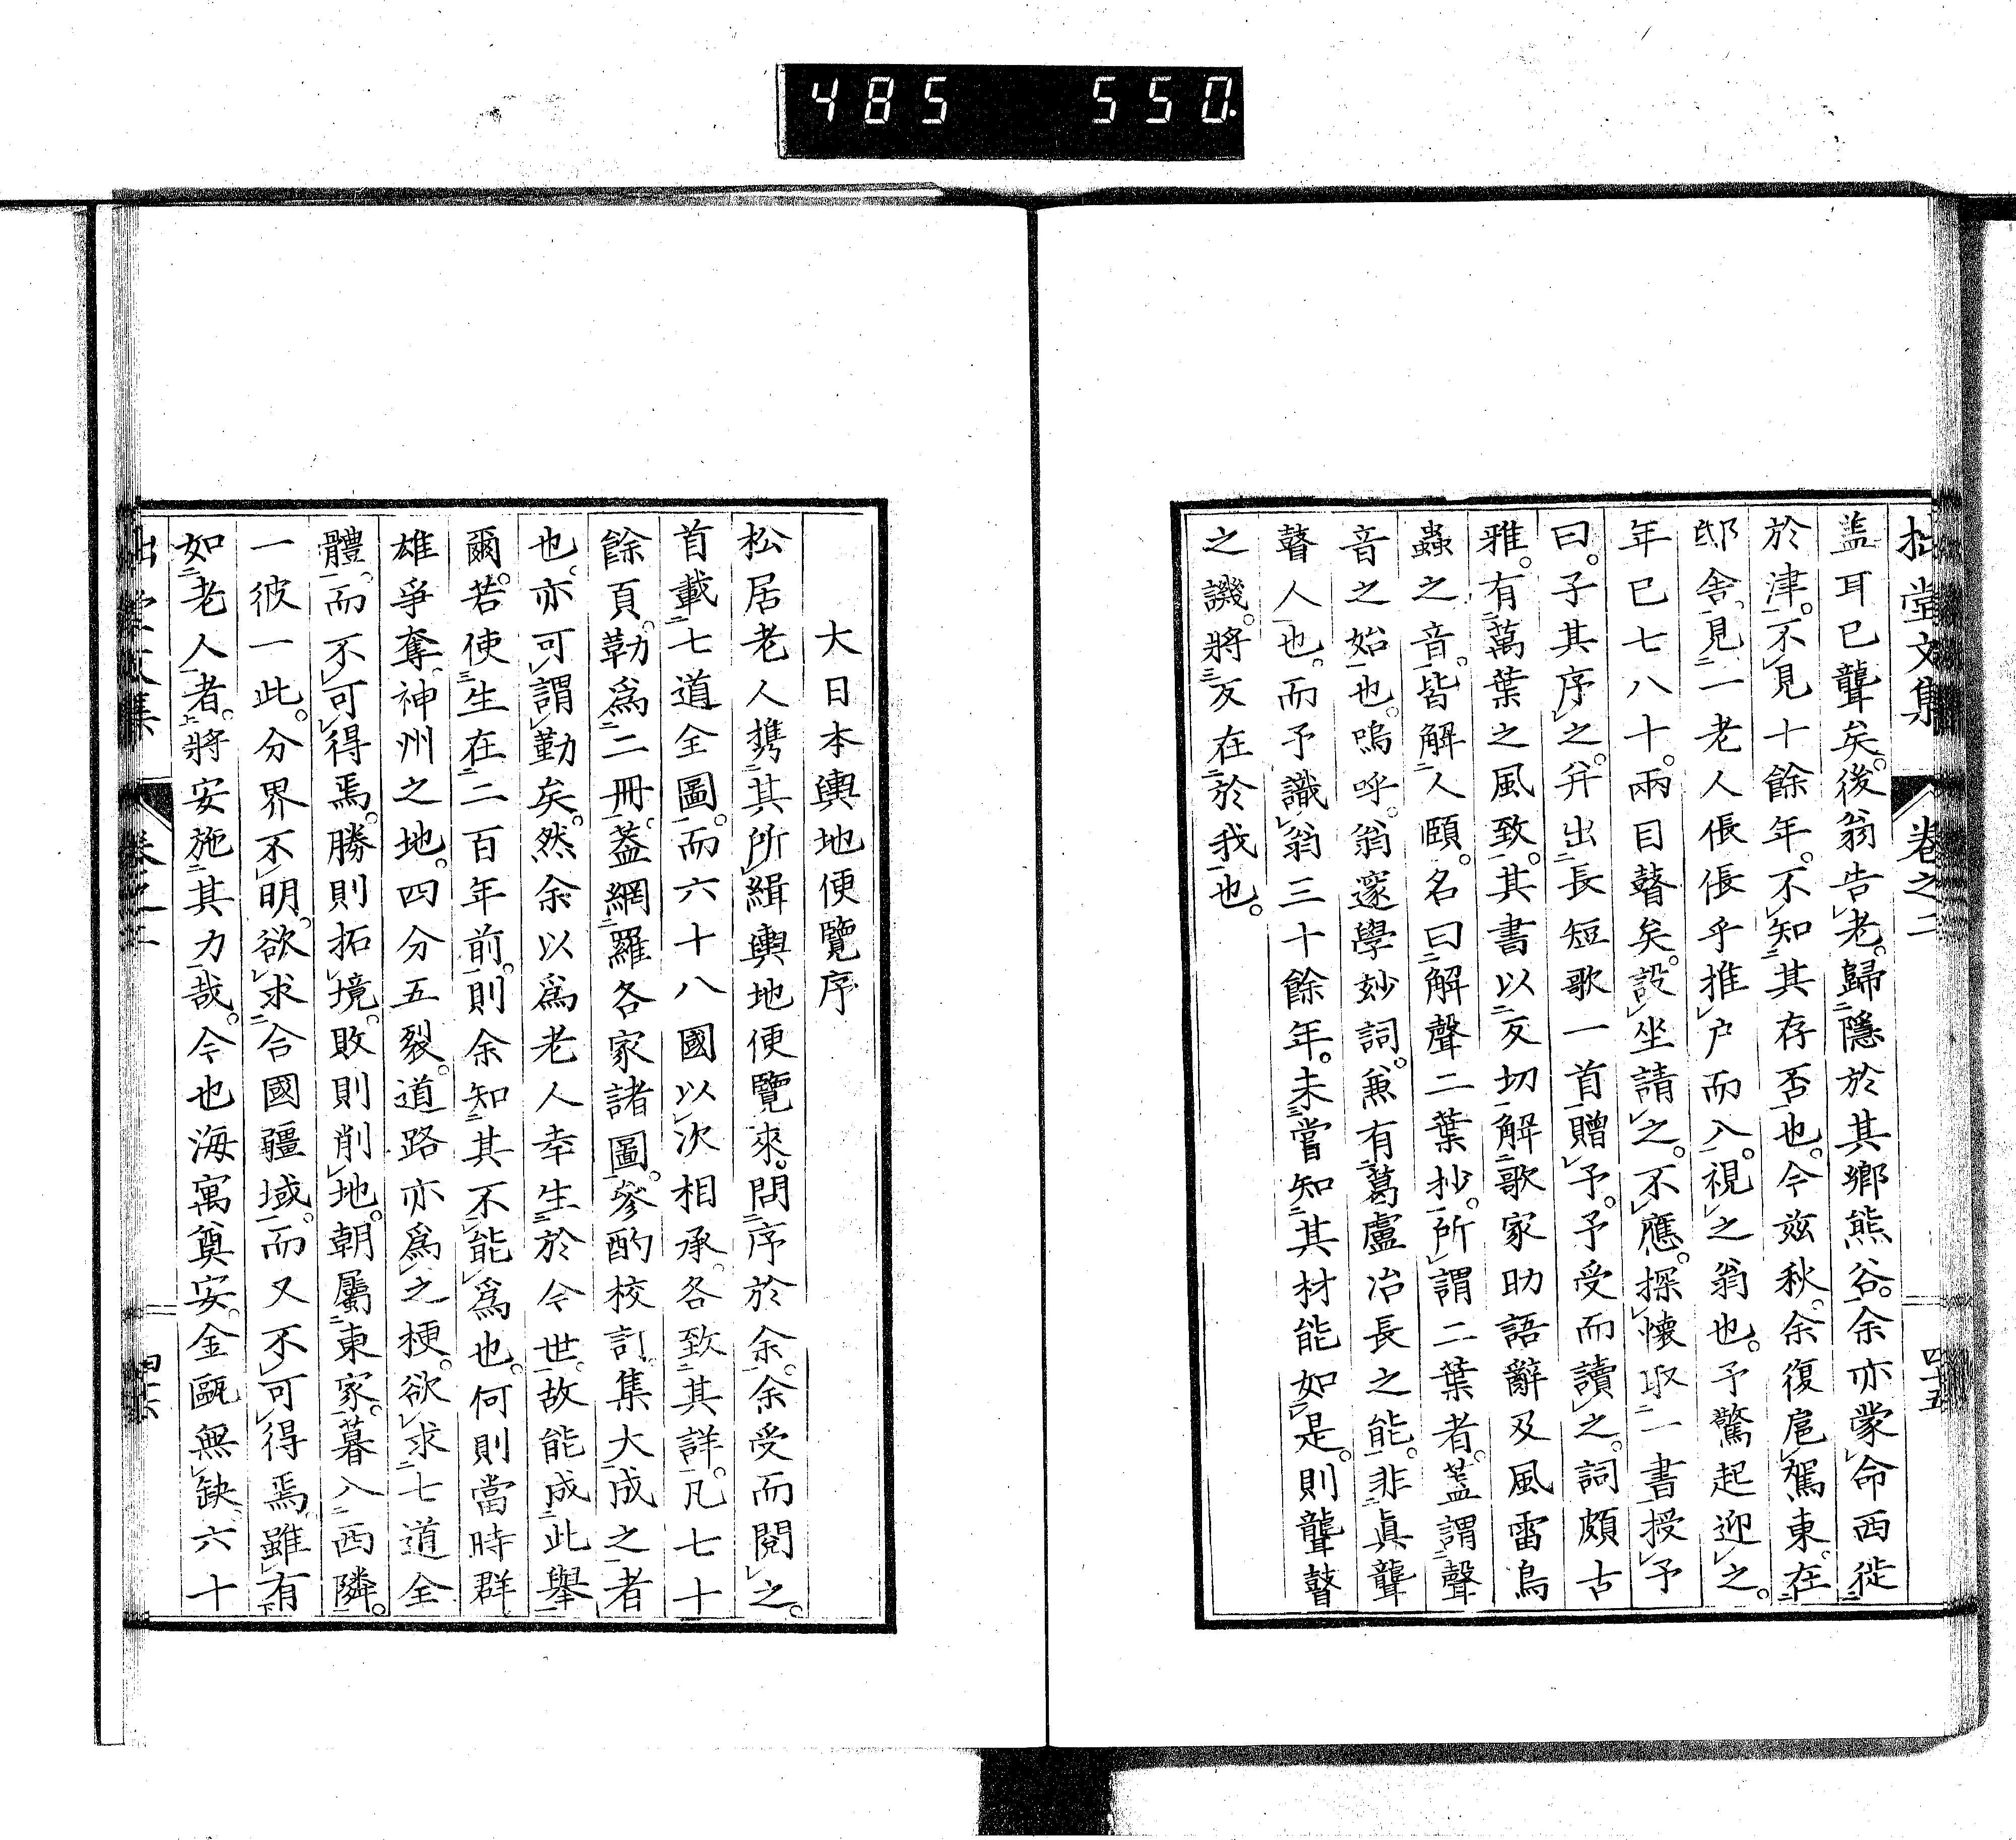 485 550.
拙堂文集 卷之二 四十五
盖耳已聾矣。後翁告老。歸隱於其鄉熊谷。余亦蒙命西徙
於津。不見十餘年。不知其存否也。今玆秋。余復扈駕東。在
邸舍。見一老人倀倀乎推戶而入。視之翁也。予驚起迎之。
年已七八十。兩目瞽矣。設坐請之。不應。探懷取一書授予
曰。子其序之。并出長短歌一首贈予。予受而讀之。詞頗古
雅。有萬葉之風致。其書以反切解歌家助語辭及風雷鳥
蟲之音。皆解人頤。名曰解聲二葉抄。所謂二葉者。蓋謂聲
音之始也。嗚呼。翁邃學妙詞。兼有葛盧冶長之能。非眞聾
瞽人也。而予識翁三十餘年。未嘗知其材能如是。則聾瞽
之譏。將反在於我也。
大日本輿地便覽序
松居老人携其所緝輿地便覽來。問序於余。余受而閱之。
首載七道全圖。而六十八國以次相承。各致其詳。凡七十
餘頁。勒爲二冊。蓋網羅各家諸圖。參酌校訂。集大成之者
也。亦可謂勤矣。然余以爲老人幸生於今世。故能成此擧
爾。若使生在二百年前。則余知其不能爲也。何則當時群
雄爭奪。神州之地。四分五裂。道路亦爲之梗。欲求七道全
體。而不可得焉。勝則拓境。敗則削地。朝屬東家。暮入西隣。
一彼一此。分界不明。欲求合國疆域。而又不可得焉。雖有
如老人者。將安施其力哉。今也海寓奠安。金甌無缺。六十
拙堂文集 卷之二 四十六